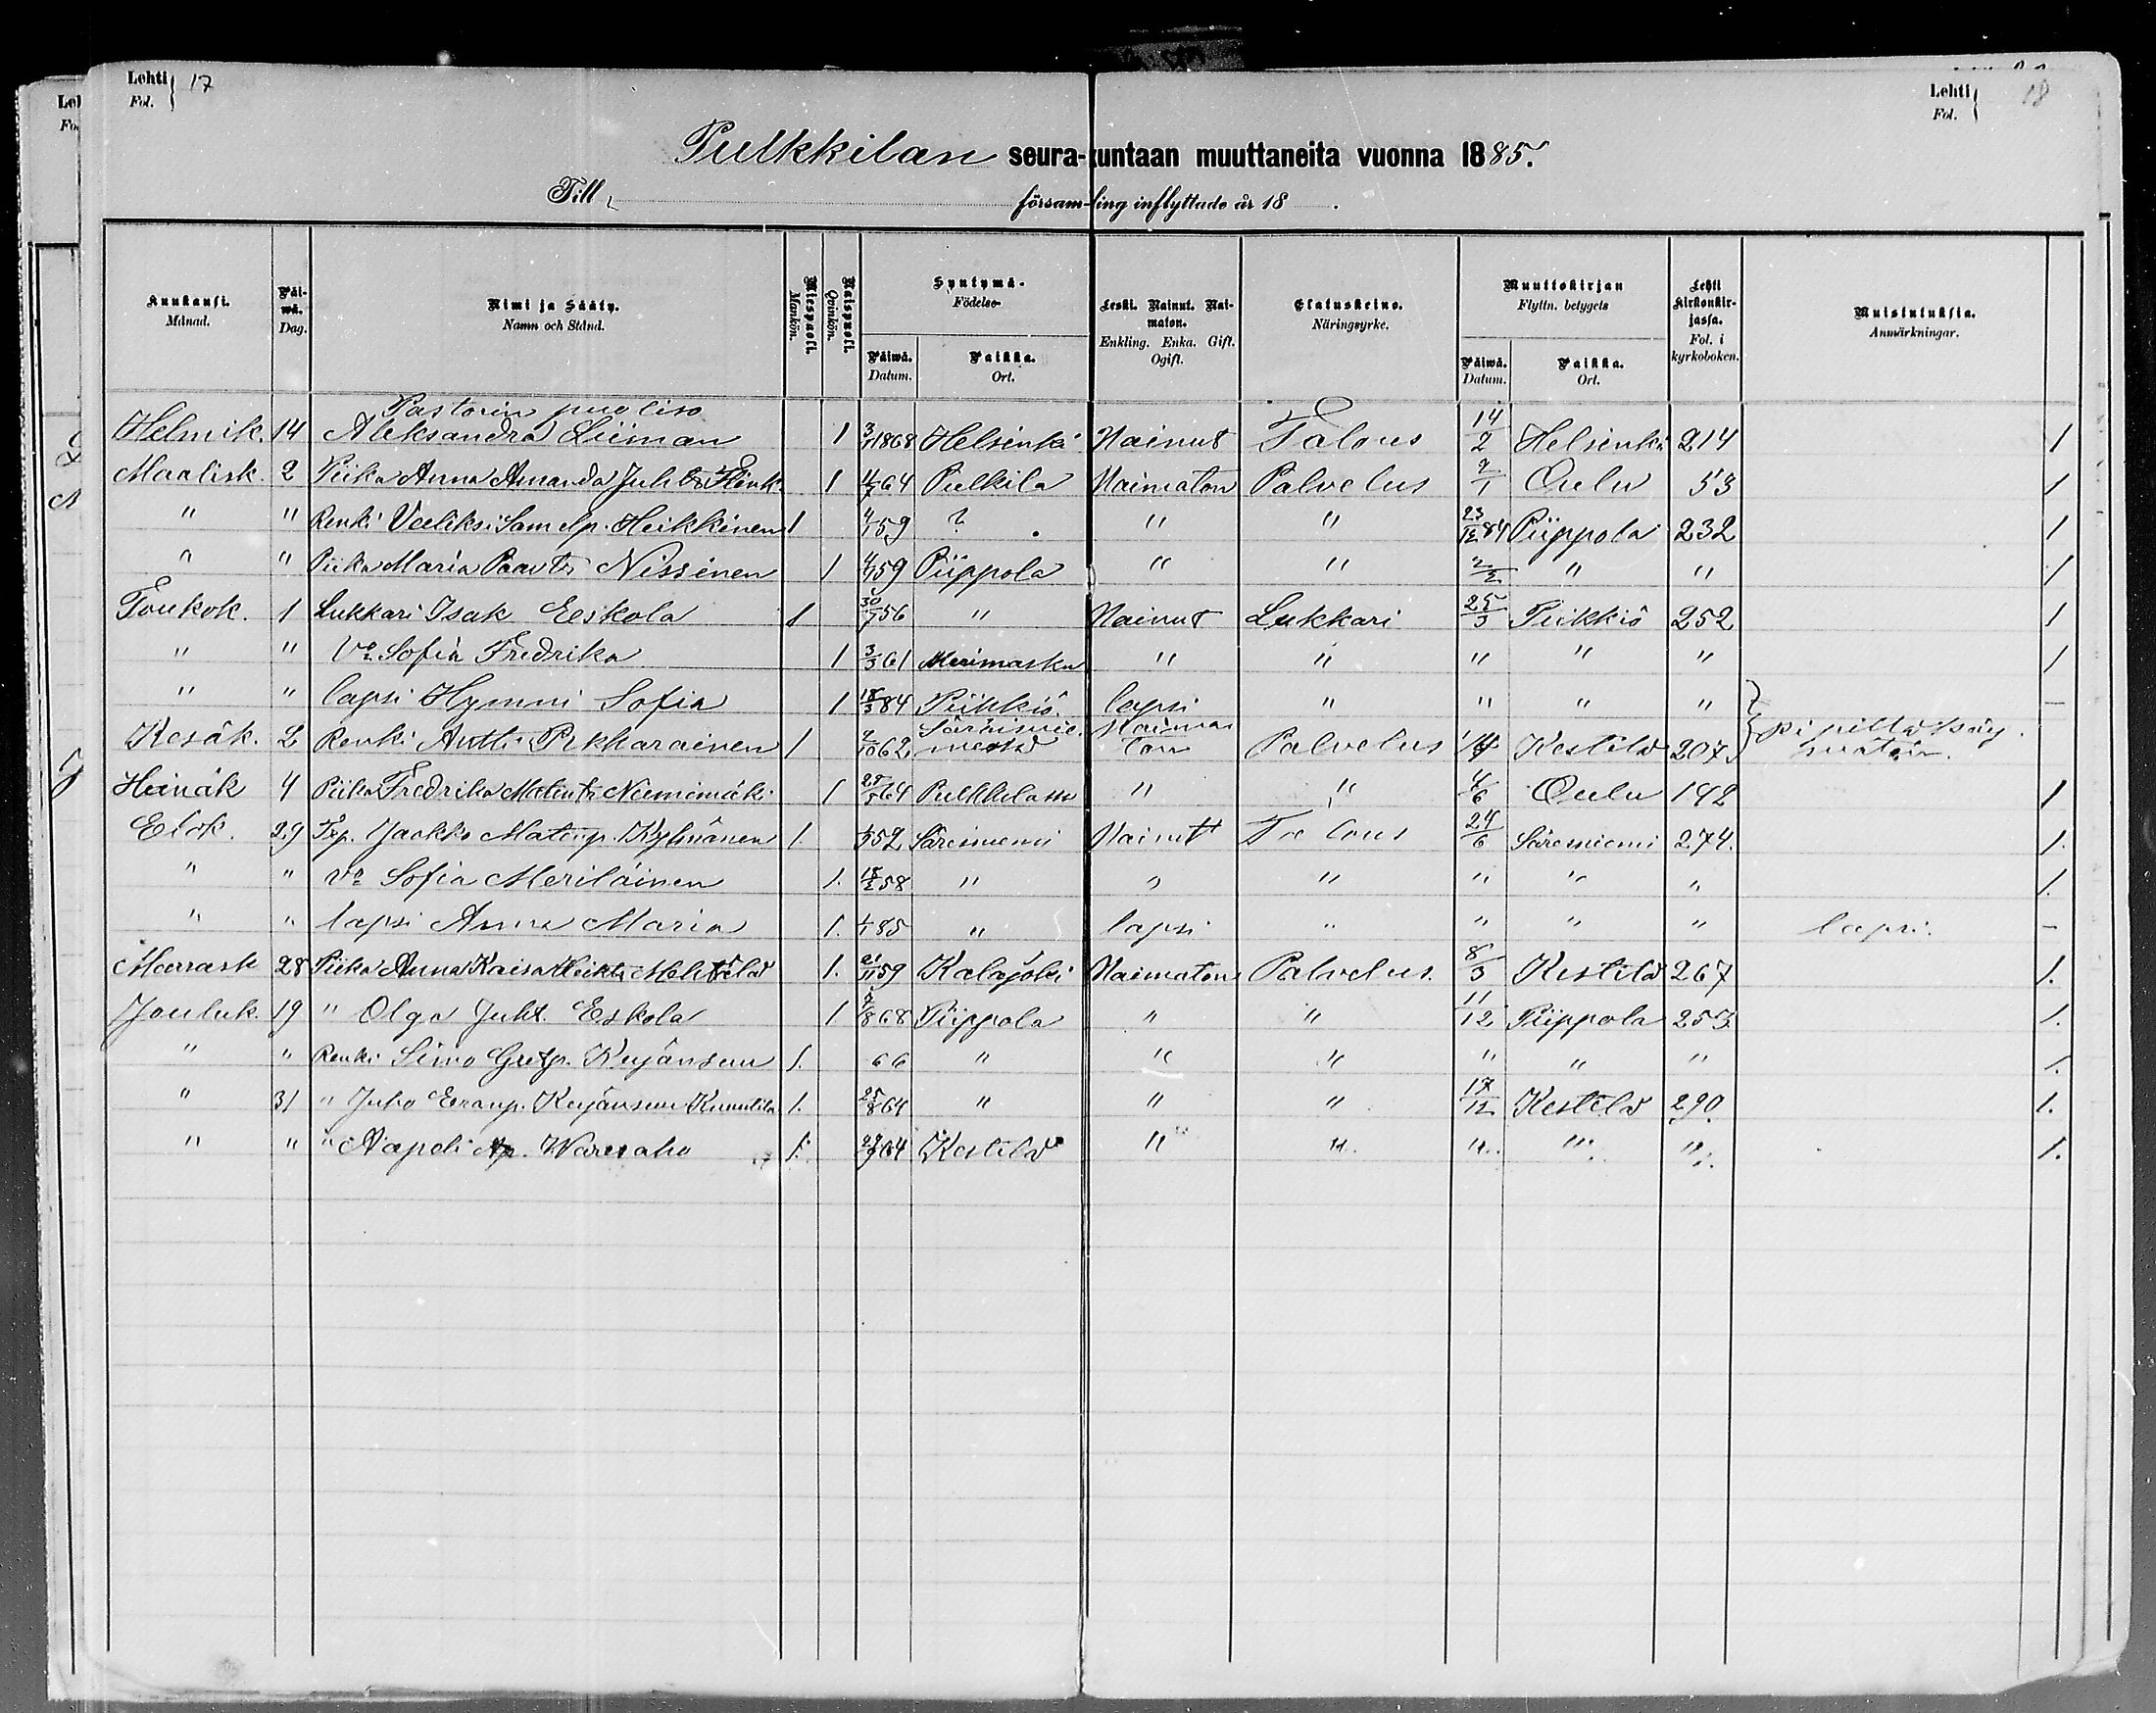 Lehti 17
Fol.
Lehti 18
Fol.
Pulkkilan seura-kuntaan muuttaneita vuonna 1885.
Till församling inflyttade år 18 .
Kuukausi. Månad. | Päiwä. Dag. | Nimi ja Sääty. Namn och Stånd. | Miespuoli. Mankön. | Naispuoli. Qvinkön. | Syntymä- Födelse- Päiwä. Datum. | Paikka. Ort. | Leski. Nainut. Naimaton. Enkling. Enka. Gift. Ogift. | Elatuskeino. Näringsyrke. | Muuttokirjan Flyttn. betygets Päiwä. Datum. | Paikka. Ort. | Lehti Kirkonkirjassa. Fol. i kyrkoboken. | Muistutuksia. Anmärkningar.
Pastorin puoliso
Helmik. 14 Aleksandra Liiman 1 1868 Helsinki Nainut Talous 14/2 Helsinki 214 1
Maalisk. 2 Piika Anna Amanda Juht Flink 1 64 Pulkila Naimaton Palvelus Oulu 53 1
" " Renki Samelp. Heikkinen 1 59 ? " " 23/12 84 Piippola 232 1
" " Piika Maria Paavt Nissinen 1 59 Piippola " " 2/2 " " 1
Toukok. 1 Lukkari Isak Eeskola 1 30/7 56 " Nainut Lukkari 25/3 Piikkiö 252 1
" " Vo Sofia Fredrika 1 3/3 61 Merimasku " " " " " 1
" " lapsi Hymni Sofia 1 18/3 84 Piikkiö lapsi " " " " –
Kesäk. 2 Renki Antti 1 2/10 62 Naimaton Palvelus Kestilä 207
Heinäk 4 Piika Fredrika Matint Niemimäki 1 64 Pulkkilassa " " 4/6 Oulu 142 1
Elok. 29 Jaakko Matinp. Kylmänen 1. 52 Säresniemi Nainut Talous 24/6 Säresniemi 274. 1.
" " Vo Sofia Meriläinen 1. 58 " " " " " " 1.
" " lapsi Anna Maria 1. 85 " lapsi " " " " lapsi. –
Marrask 28 Piika Anna Kaisa Heikt 1. 21/11 59 Kalajoki Naimaton Palvelus. 8/3 Kestilä 267 1.
Jouluk. 19 " Olga Juht. Eskola 1 68 Piippola " " 11/12 Piippola 253 1.
" " Renki Simo 1. 66 " " " " " " 1.
" 31 " Juho 1. 25/8 64 " " " 17/12 Kestilä 290. 1.
" " " Aapeli Ap. Waresaho 1. 64 Kestilä " " " " " 1.